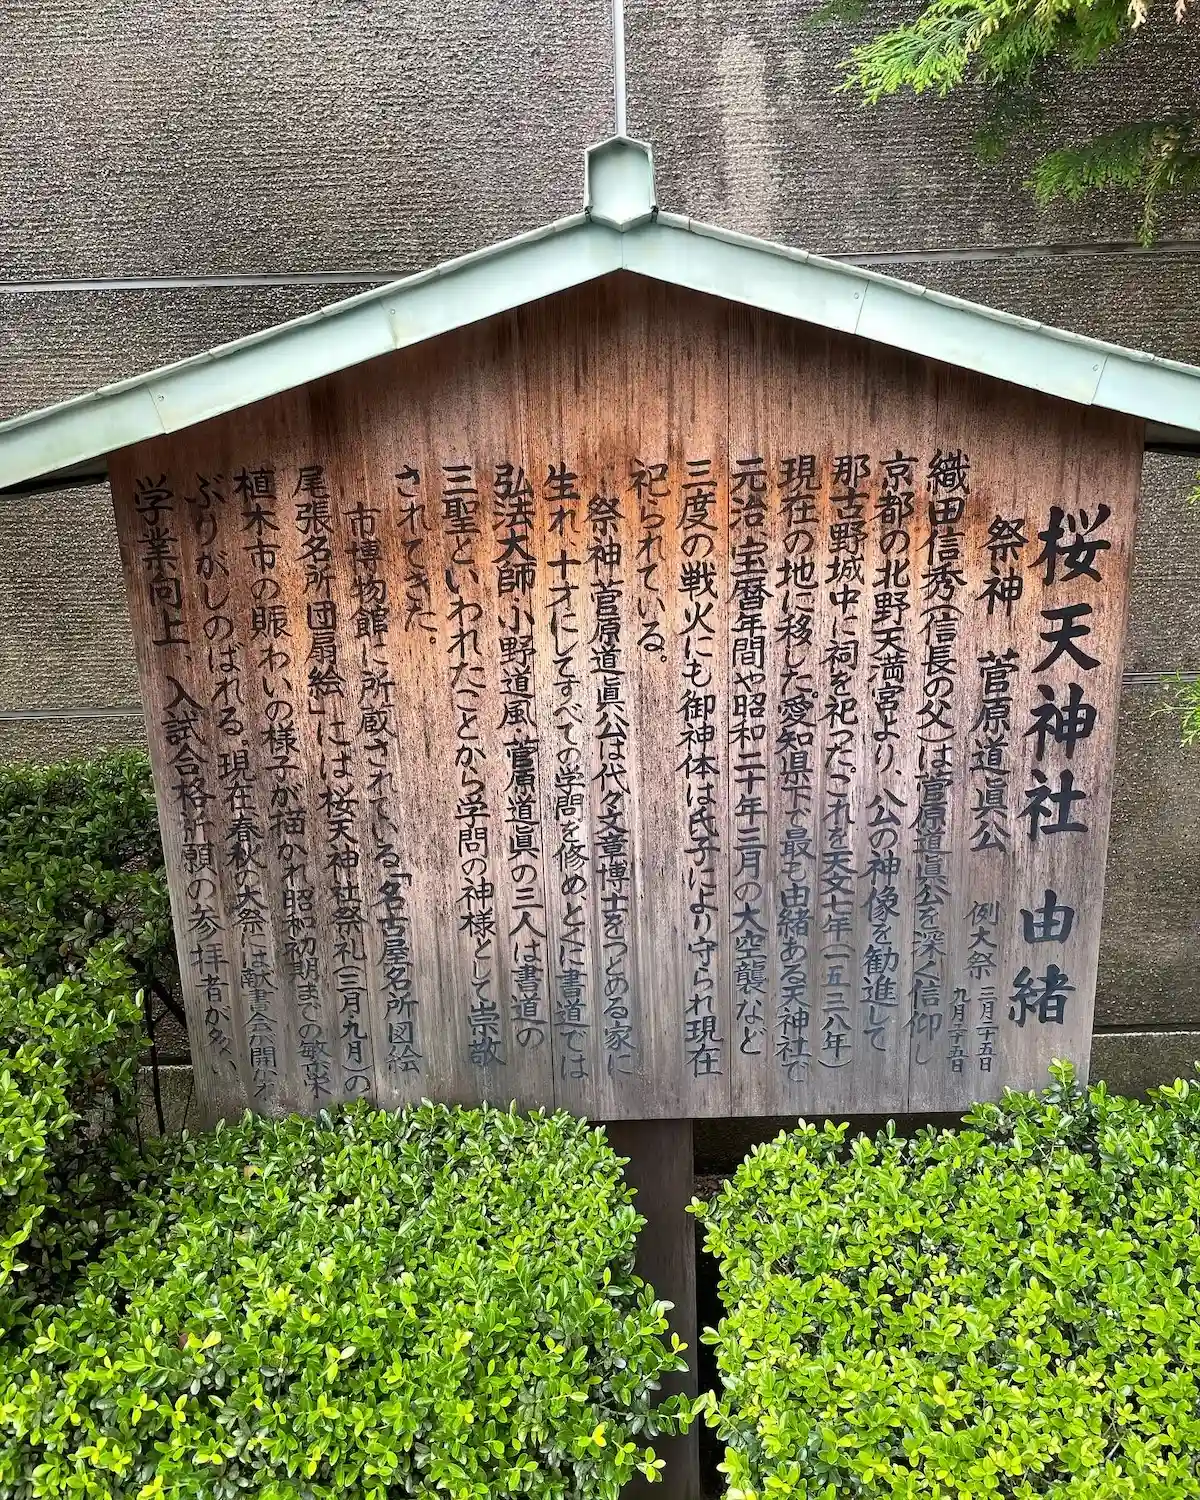 桜天神社 由緒
祭神 菅原道眞公 例大祭 三月二十五日
九月二十五日
織田信秀(信長の父)は菅原道眞公を深く信仰し
京都の北野天満宮より、公の神像を勧進して
那古野城中に祠を祀った。これを天文七年(一五三八年)
現在の地に移した。愛知県下で最も由緒ある天神社で
元治、宝暦年間や昭和二十年三月の大空襲など
三度の戦火にも御神体は氏子により守られ現在
祀られている。
祭神 菅原道眞公は代々文章博士をつとめる家に
生れ、十才にしてすべての学問を修め、とくに書道では
弘法大師、小野道風、菅原道眞の三人は書道の
三聖といわれたことから学問の神様として崇敬
されてきた。
市博物館に所蔵されている「名古屋名所図絵
尾張名所団扇絵」には桜天神社祭礼(三月九月)の
植木市の賑わいの様子が描かれ昭和初期までの繁栄
ぶりがしのばれる。現在春秋の大祭には献書会開かれ
学業向上、入試合格祈願の参拝者が多い